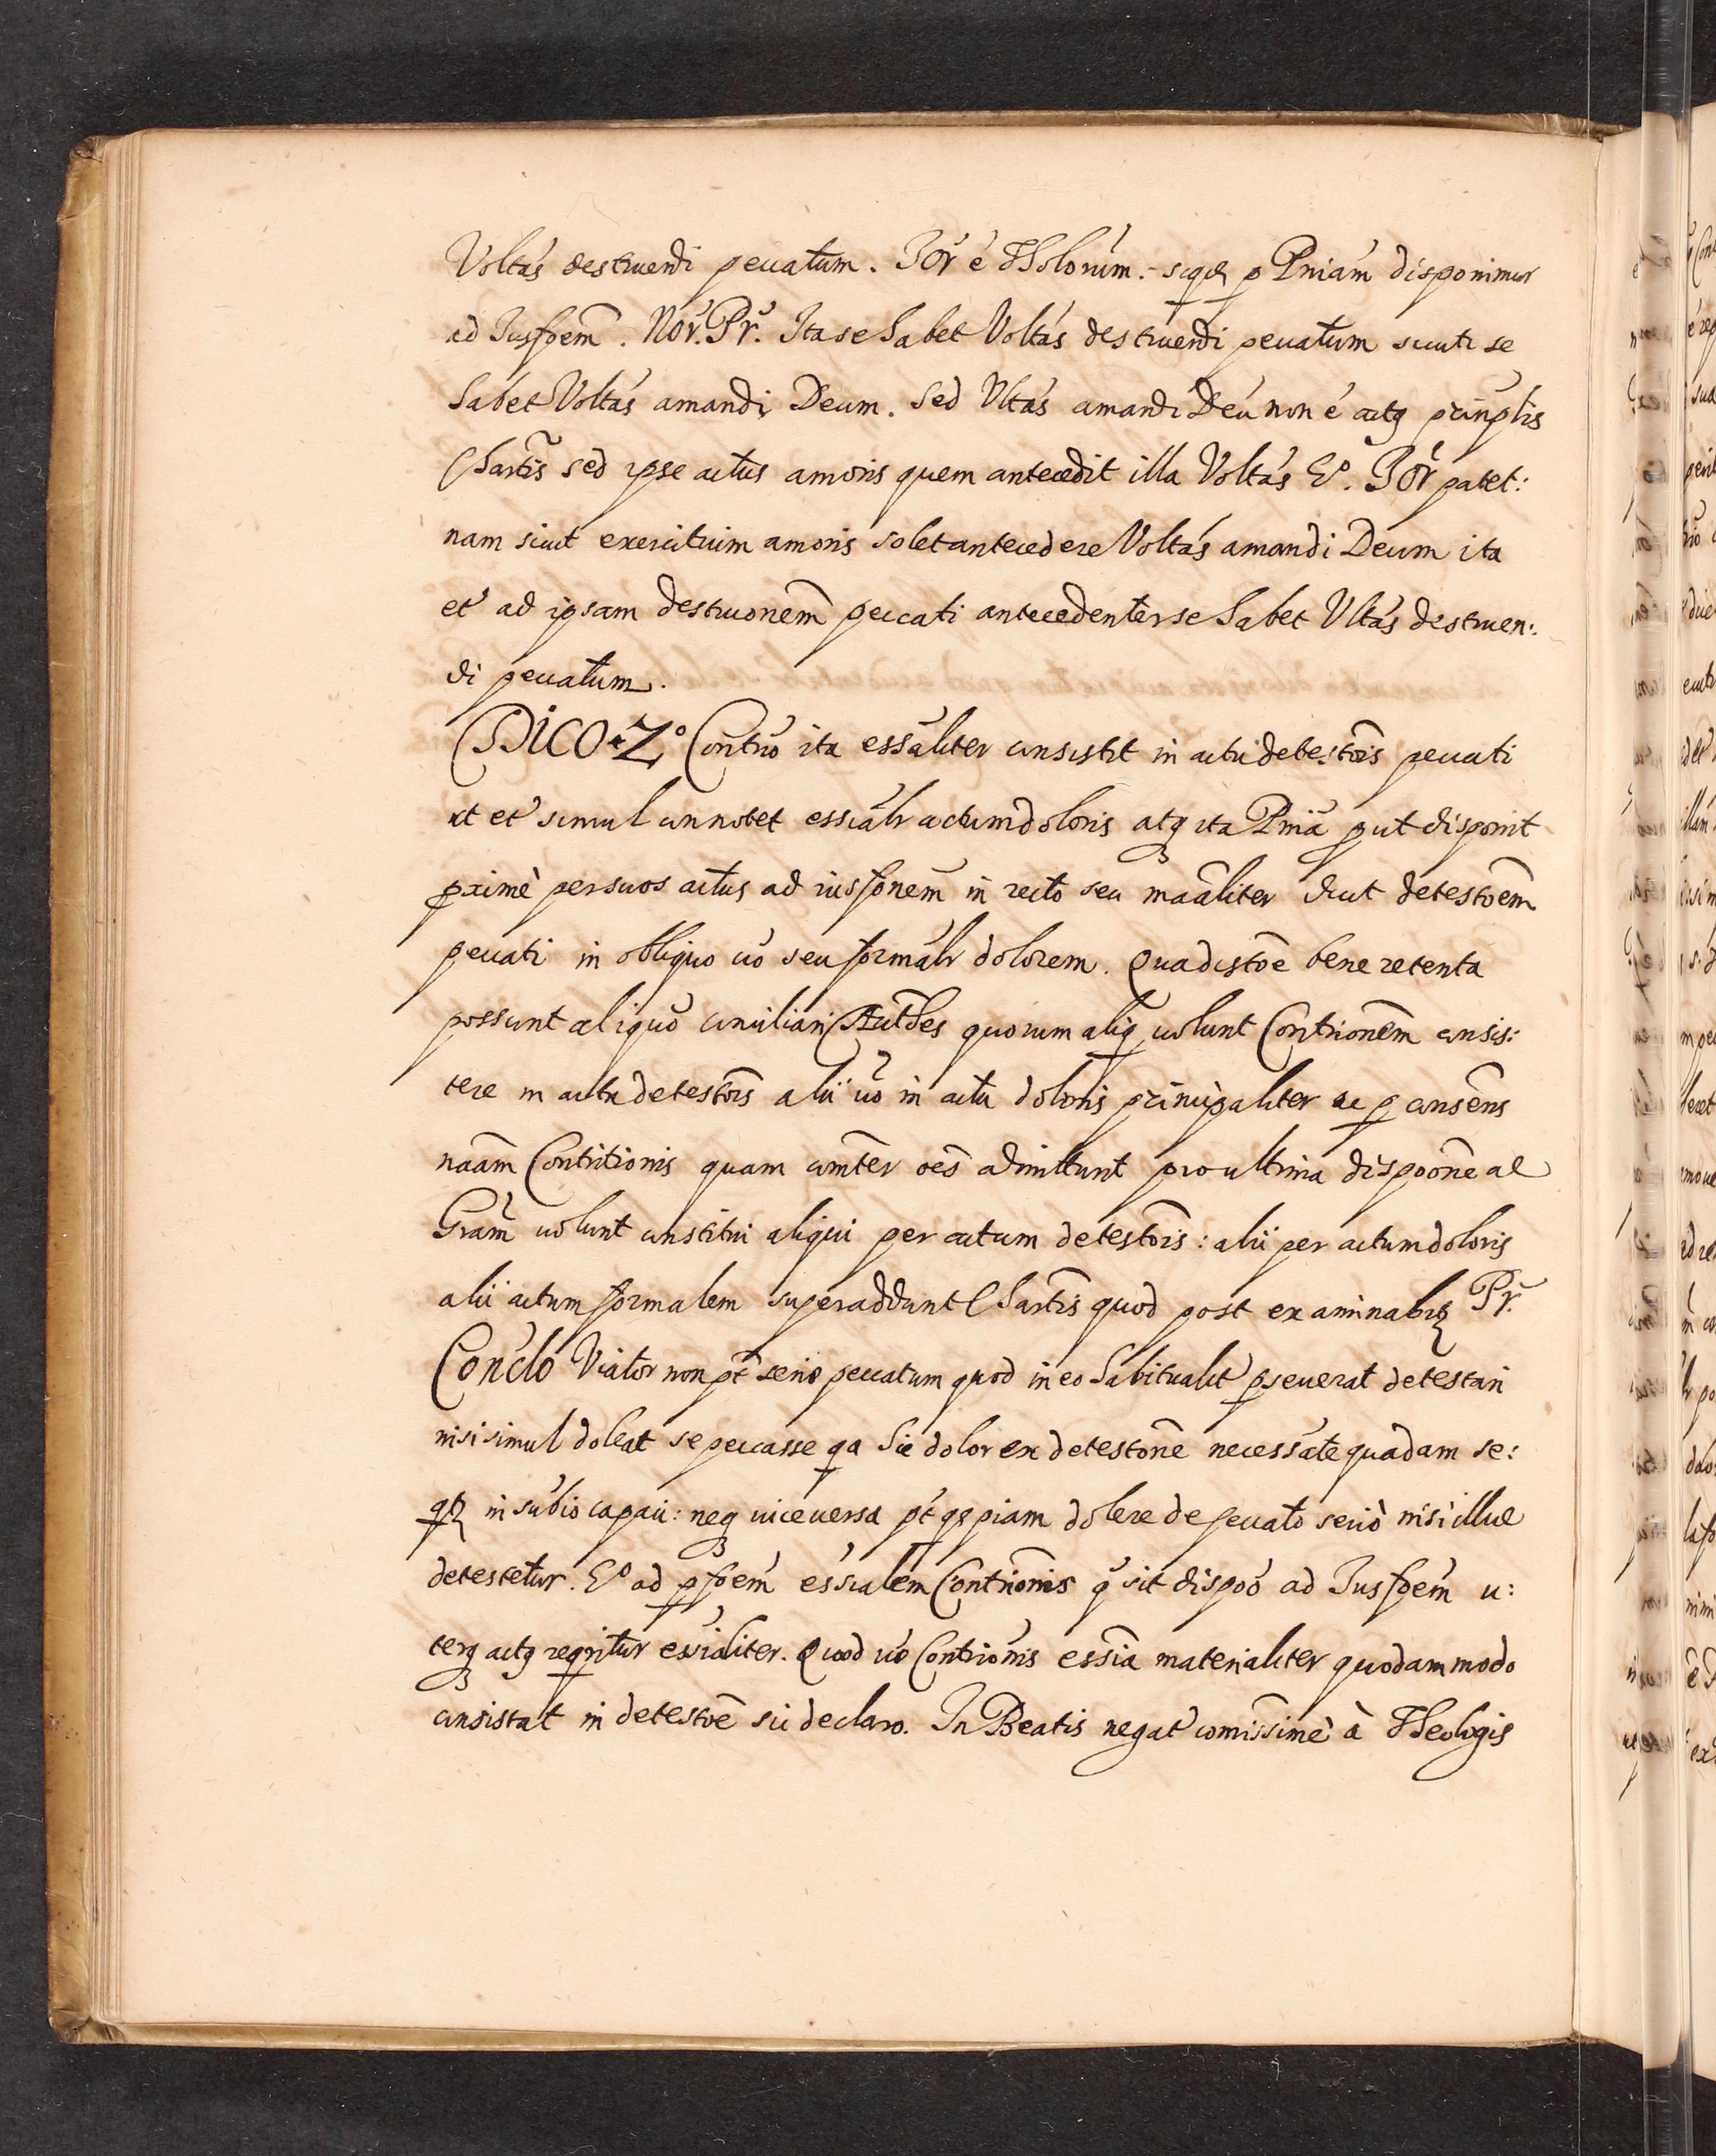 Voltás destruendi peccatum. Jór é Tholorúm. siqd p Pniám disponimur
ad Jusfoem̃. Nór. Pr̃. Ita se habet Voltás destruendi peccatum sicuti se
habet Voltás amandi Deum. Sed Vltás amandi Deú non é actq prinp̃lis
Chartis̃ sed ipse actus amoris quem antecedit illa Voltás Eº. Jór patet:
nam sicut exercitium amoris solet antecedere Voltás amandi Deum ita
et ad ipsam destruonem̃ peccati antecedenter se habet Vltás destruen:
di peccatum.
DICO 2º Contrió ita essáliter consistit in actu detestois̃ peccati
ut et simul connotet essiálr actum doloris atq ita Pniã put disponit
proximè per suos actus ad iusfonem̃ in recto seu maãliter dicit detestoem̃
peccati in obliquo uó seu formálr dolorem. Qua distoẽ bene retenta
possunt aliquó conciliari Authẽs quorum aliq uolunt Contrionem̃ consis:
tere in actu detestois̃ alii uó in actu doloris principaliter ac p consẽns
naãm Contritionis quam comṫer oẽs admittunt pro ultima dispoonẽ ad
Grãm uolunt constitui aliqui per actum detestois̃: alii per actum doloris
alii actum formalem superaddunt Chartis̃ quod post examinabiq Pr̃.
Conclo Viator non pt́ serio peccatum quod in eo habitualit́ pseuerat detestari
nisi simul doleat se peccasse qa hic dolor ex detestonẽ necessáte quadam se:
qtr in subió capaci: neq uice uersa pt́ qspiam dolere de peccato seriò nisi illud
detestetur. Eº ad pfoem̃ essialem̃ Contrionis̃ q̃ sit dispoó ad Jusfoem̃ u:
terq actq reqritur essiáliter. Quod uó Contriónis essiã materialiter quodammodo
consistat in detestoẽ sic declaro. In Beatis negat́ comissimè à Theologis